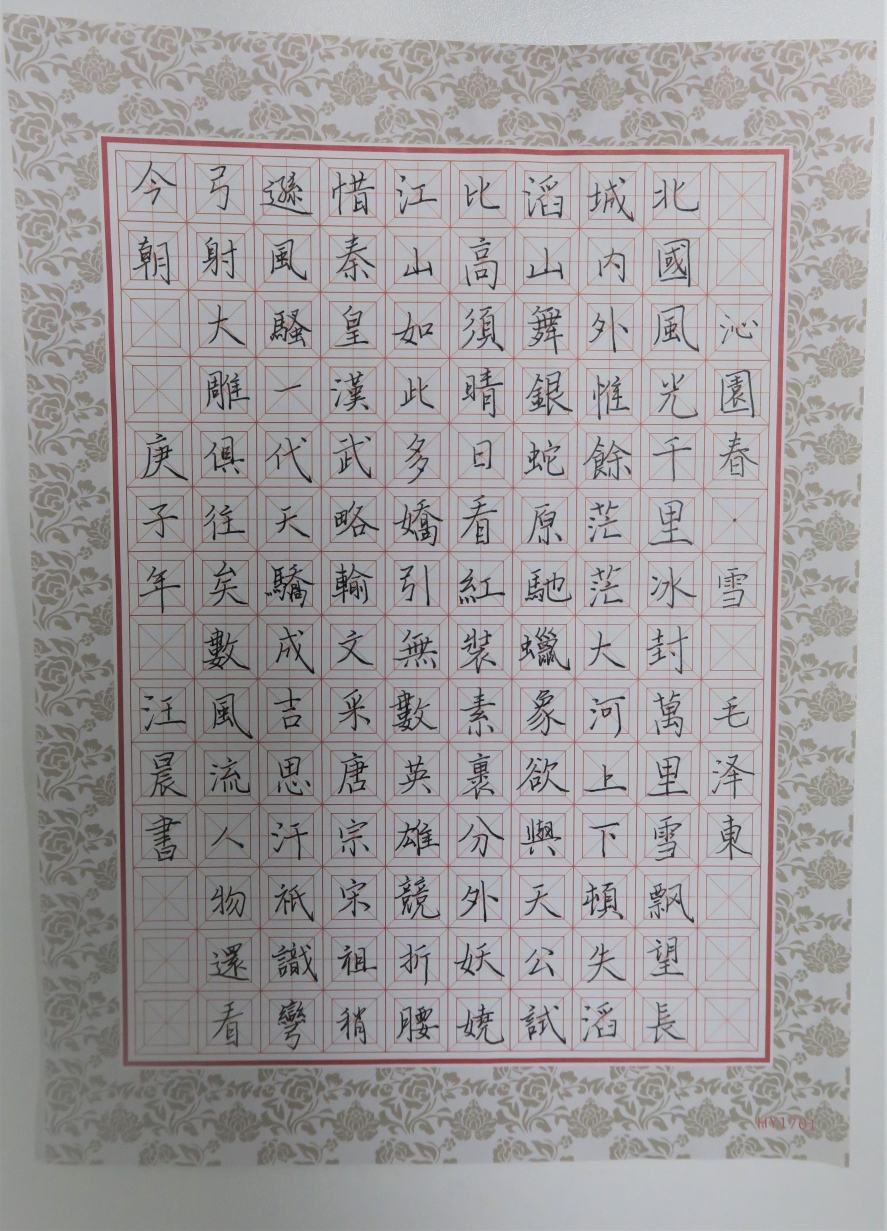 沁園春·雪 毛泽東
北國風光千里冰封萬里雪飘望長
城内外惟餘茫茫大河上下頓失滔
滔山舞銀蛇原馳蠟象欲與天公試
比高須晴日看紅裝素裹分外妖嬈
江山如此多嬌引無數英雄競折腰
惜秦皇漢武略輸文采唐宗宋祖稍
遜風騷一代天驕成吉思汗祇識彎
弓射大雕俱往矣數風流人物還看
今朝 庚子年 汪晨書
HY1701